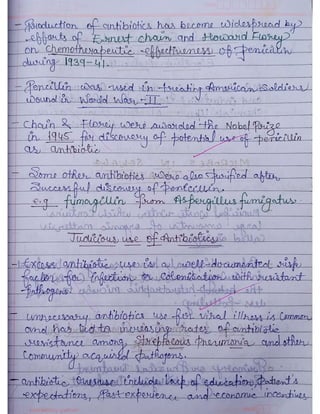 - Production of antibiotics has become widespread by
efforts of Ernest chain and Howard Florey
on chemotherapeutic effectiveness of penicilin
during 1939-41.
- Pencillin was used in treating American Soldiers
wound in World War -II.
- Chain & Florey were awarded the Nobel Prize
in 1945 for discovery of potential use of penicillin
as antibiotic
- Some other antibiotics were also purified after
Successful discovery of Penicillin
e.g. fumagillin from Aspergillus fumigatus.
Judicious use of Antibiotics
- Excess antibiotic use is a well-documented risk
factor for infection or colonisation with resistant
pathogens.
- unnecessary antibiotics use for viral illness is common
and has led to increasing rates of antibiotic
resistance among Streptococus pneumonia and other
Community acquired pathogens.
- antibiotic overuse include lack of education, Patient's
expectations, Past experience and economic incentives